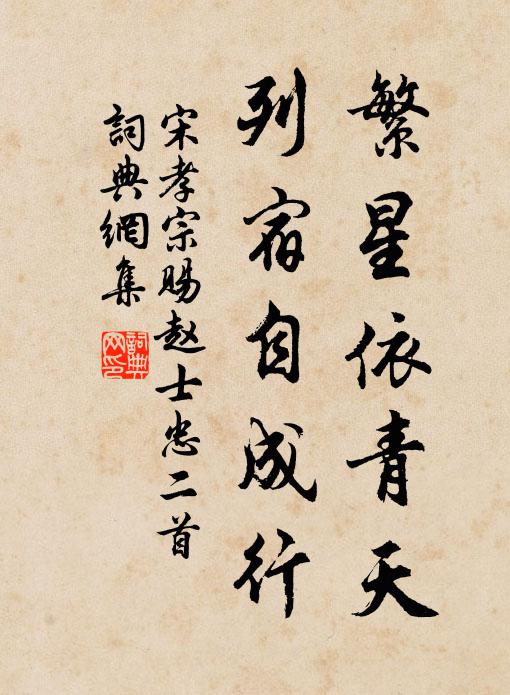 繁星依青天
列宿自成行
宋孝宗賜赵士忠二首
詞典網集
詞典網印